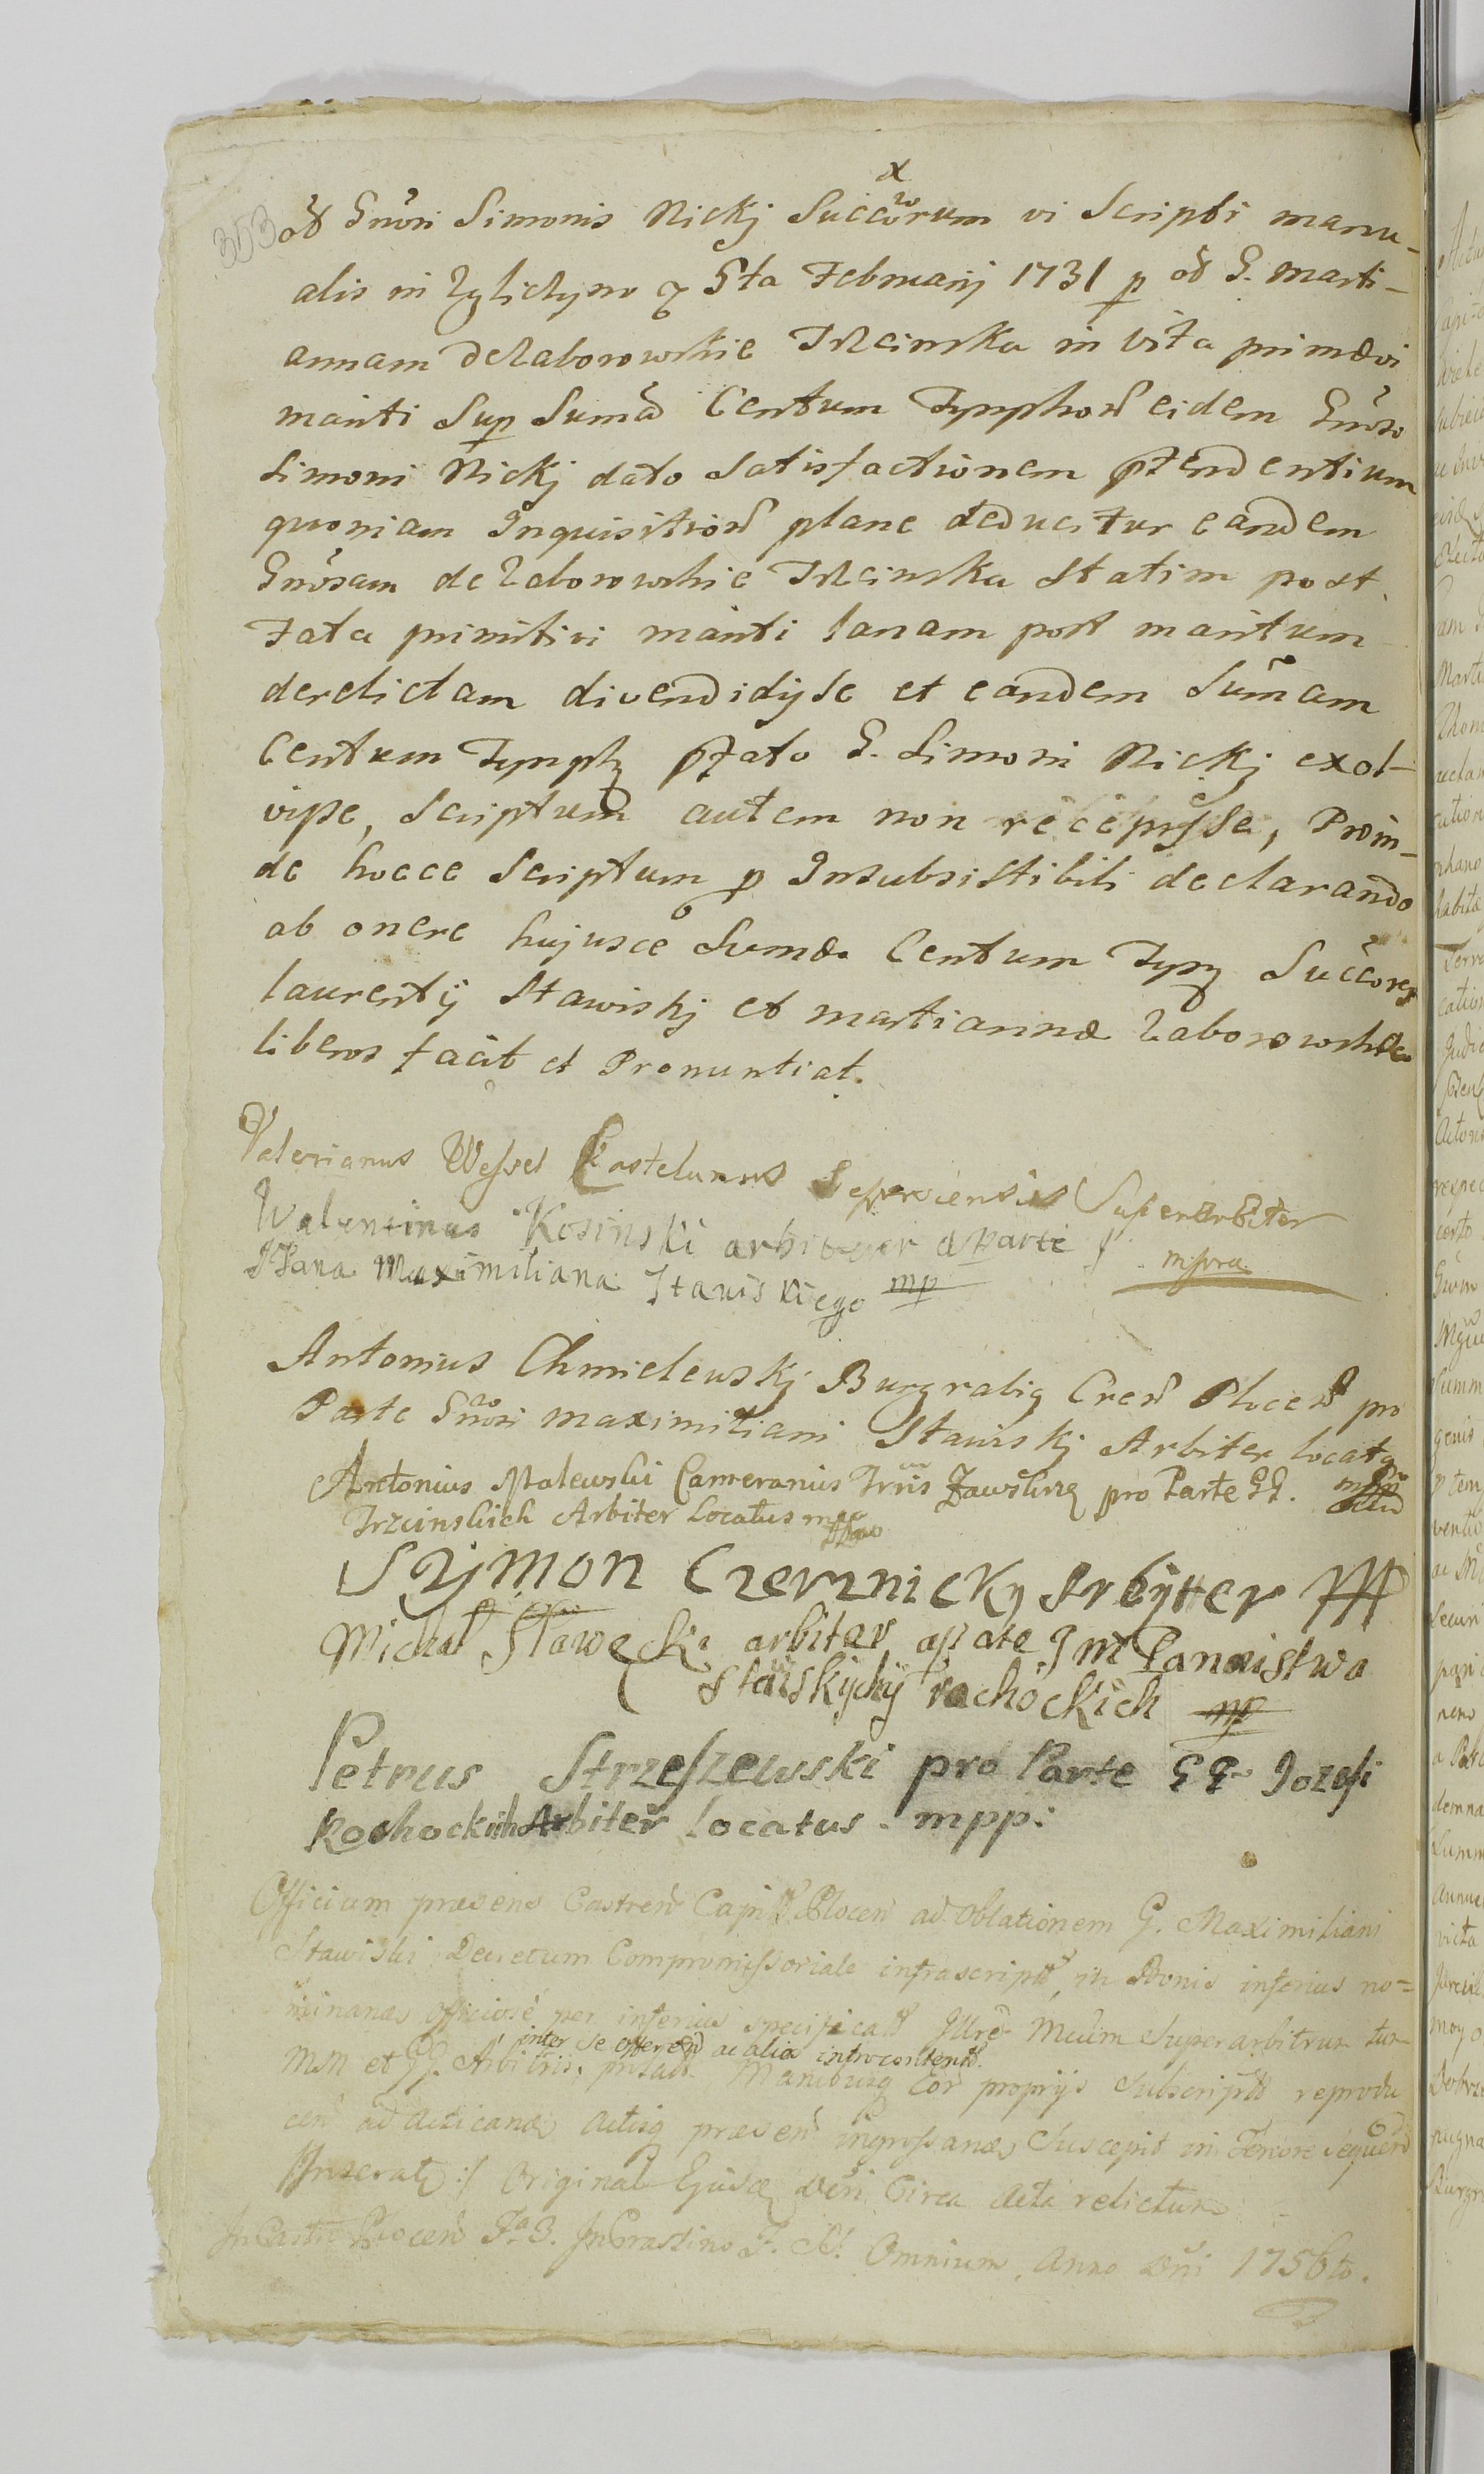 x
353
oð Gnõri Simonis Nickj Succõrum vi Scripti manu-
alis in Zglictyno 5ta Februarij 1731 p oð G. Marti-
annam de Zaborowskie Trzcinska in vita primævi
mariti Sup Sumã Centum Tynphoñ eidem Gnõso
Simoni Nickj dato satisfactionem ptendentium
quoniam Inquisitioñ plane deducitur eandem
Gnõsam de Zaborowskie Trzcinska Statim post
Fata primitivi mariti lanam post maritum
derelictam divendidyse et eandem Sum̃am
Centum Tynph pfato G. Simoni Nickj exol-
viße, Scriptum autem non recepyse, Proin-
de hocce Scriptum p Insubsistibili declarando
ab onere hujusce Sumæ Centum Typ Succores
Laurentij Stawiskj et Martiannæ Zaborowskæ
liberos facit et Pronuntiat.
Valerianus Wessel Kastelanus Superarbiter
mpra.
Walentinus Kosinski arbiter a parte J
JPana Maximiliana Stawiskiego mp
Antonius Chmielewskj Burgrabiq Creñ Ploceñ pro
Parte Gnõri Maximiliani Stawiskj Arbiter locatq
mpp
Antonius Malewski Camerarius Trris Zawskrzq pro Parte GG.
Trzcinskich Arbiter Locatus
Szÿmon Czerznicky Arbÿtter
Michał Sławęcki arbiter a pate Jm Panaistwa
Stawskÿchÿ rachockich mp
Petrus Strzeszewski pro Parte GG Jozefi
Rochockich Arbiter locatus. mpp:
Officium præsens Castreñ Capitt Ploceñ ad Oblationem G. Maximiliani
Stawiski Decretum Compromissoriale infrascriptt, in Bonis inferius no=
minanõ officiose per inferius specificatt Illrẽ Mcum Superarbitrum tum
inter Se offereñ ac alia introcontentt.
MM et GG. Arbitris, Manibusq Eoř proprijs Subscriptt reprodu
ceñ ad acticanõ Actisq præseñ ingrossanõ, Suscepit in Tenore sequeñ
/Inseratq:/ Original Ejusdẽ Circa Acta relictum
In Castro Ploceñ Fa 3. In Crastino F. SS. Omnium, Anno Dñi 1756to.